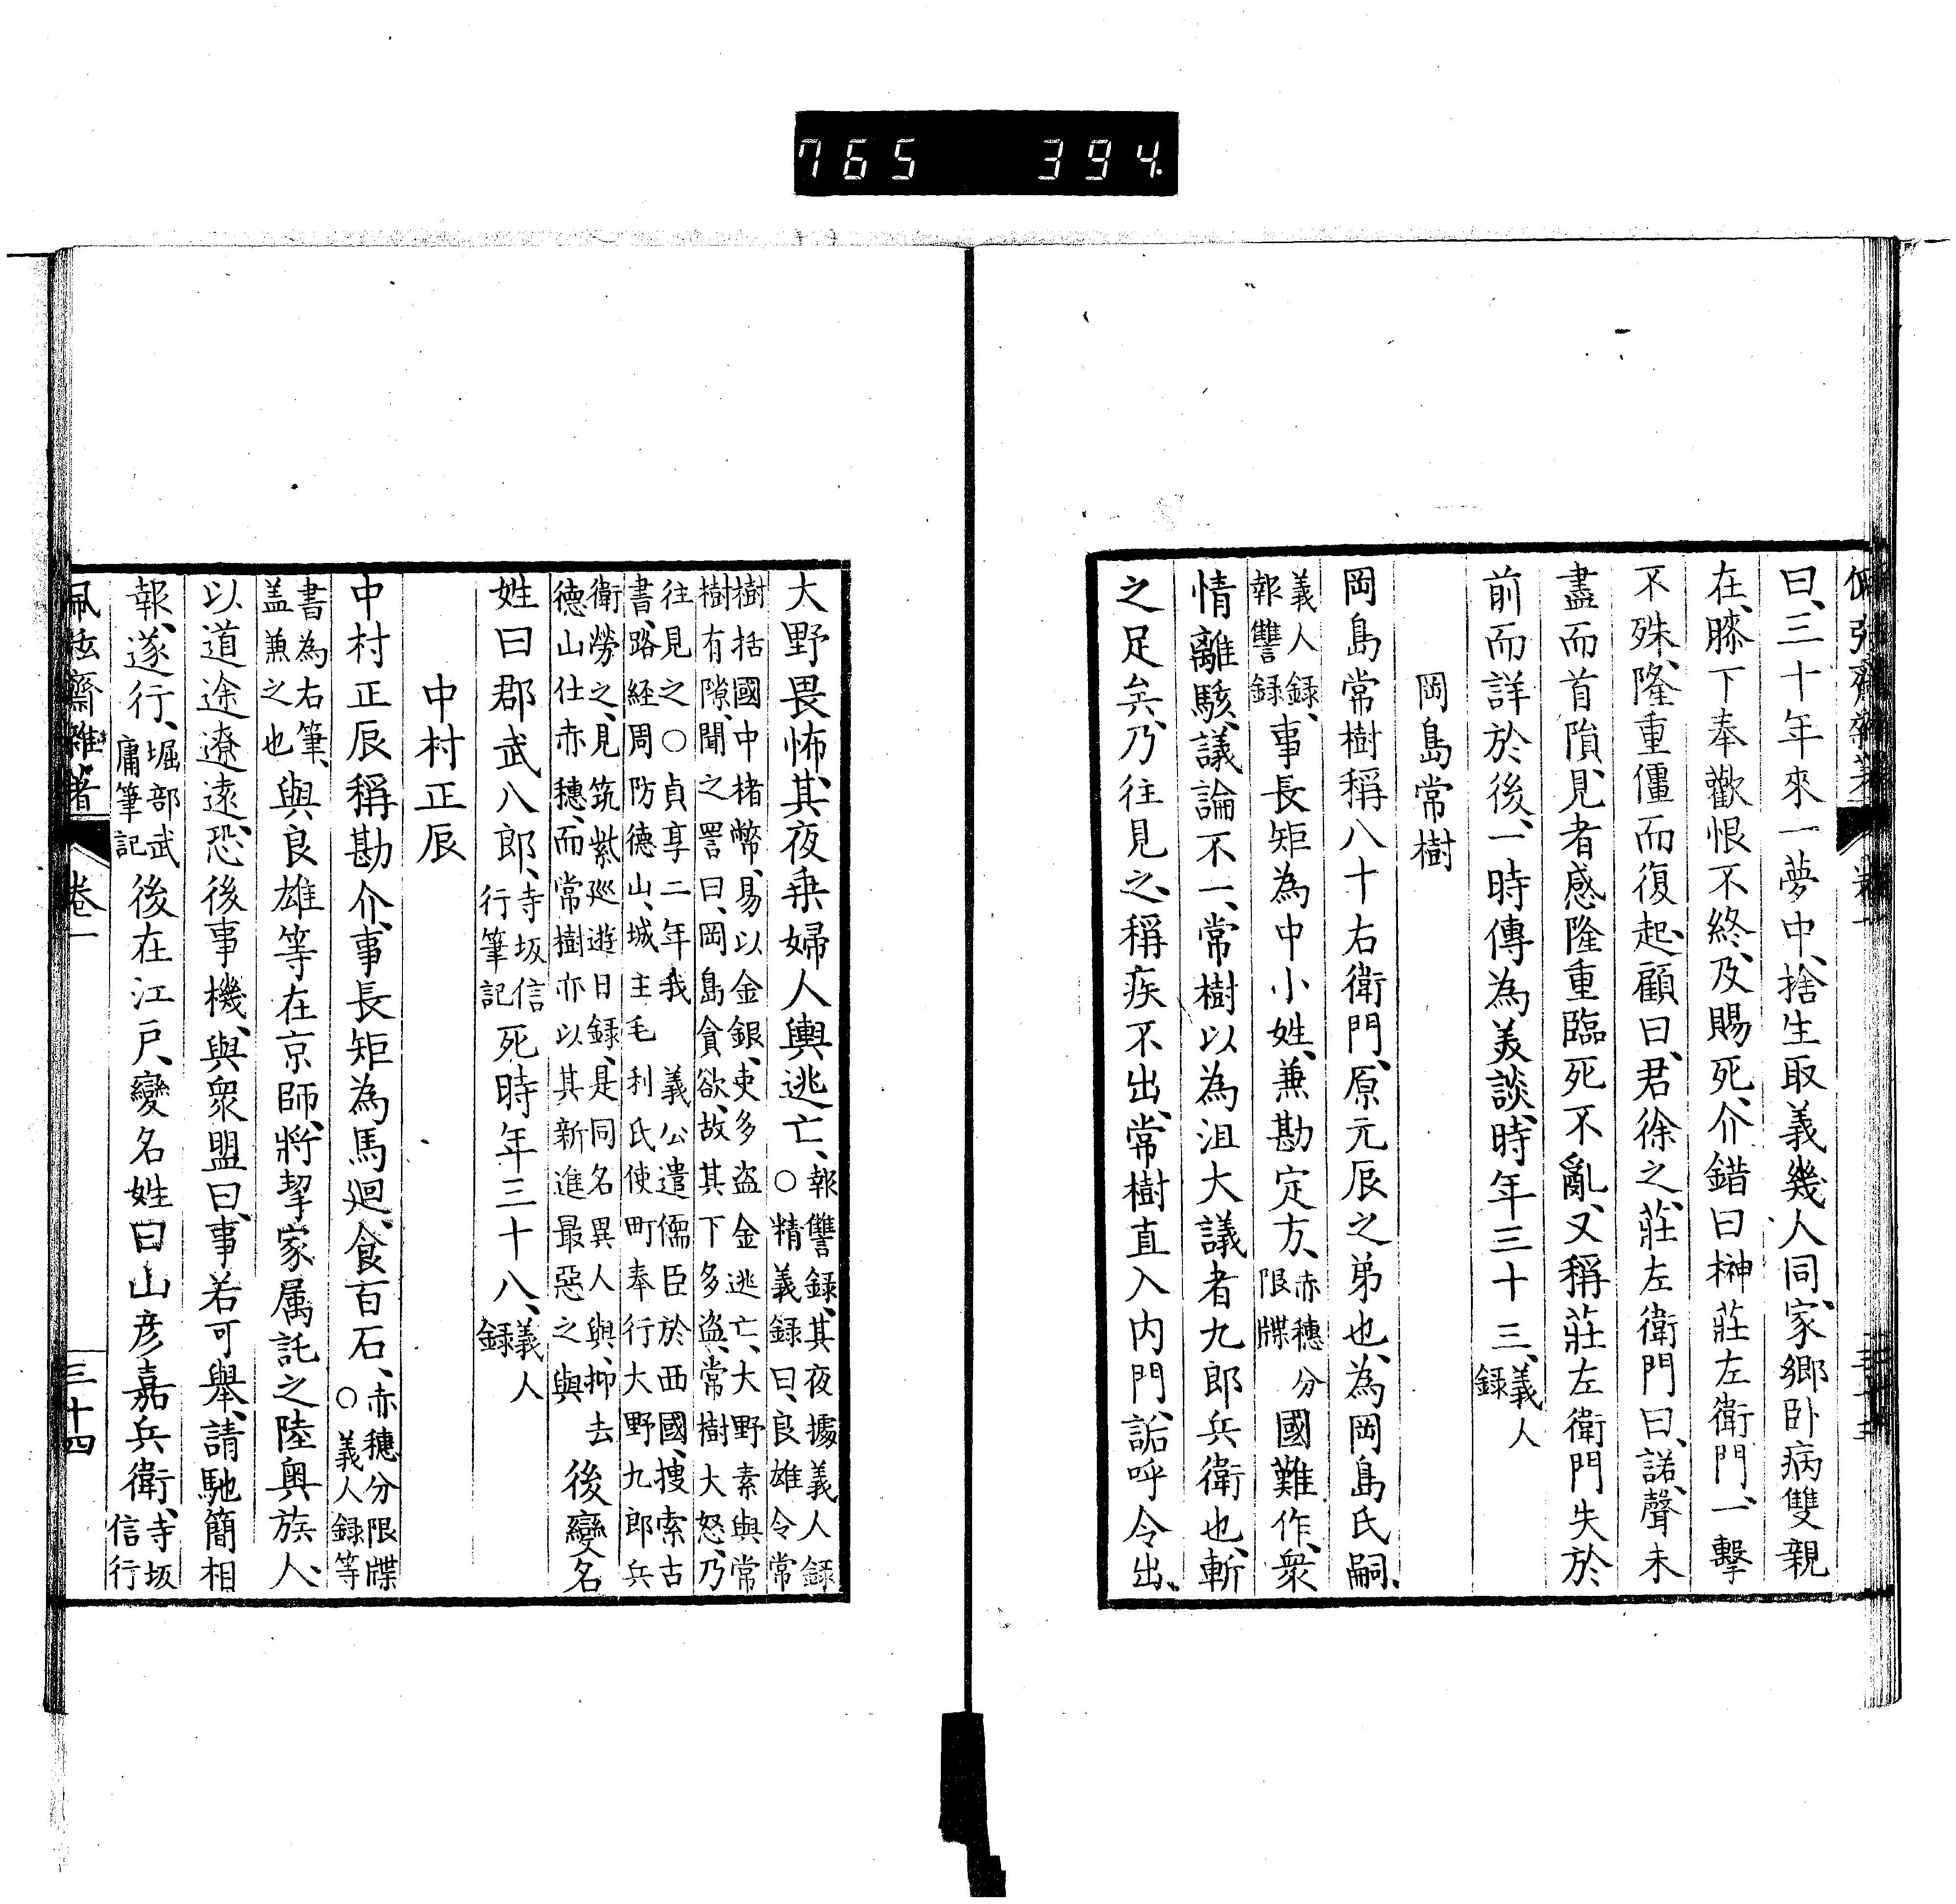 765 394.
曰、三十年來一夢中、捨生取義幾人同、家鄉卧病雙親
在、膝下奉歡恨不終、及賜死、介錯曰榊莊左衛門、一擊
不殊、隆重僵而復起、顧曰、君徐之、莊左衛門曰、諾、聲未
盡而首隕、見者感隆重臨死不亂、又稱莊左衛門失於
前而詳於後、一時傳為美談、時年三十三、義人錄
岡島常樹
岡島常樹稱八十右衛門、原元辰之弟也、為岡島氏嗣、
義人錄、報讐錄事長矩為中小姓、兼勘定方、赤穗分限牒國難作、衆
情離駭、議論不一、常樹以為沮大議者九郎兵衛也、斬
之足矣、乃往見之、稱疾不出、常樹直入內門、詬呼令出、
大野畏怖、其夜乘婦人輿逃亡、報讐錄、其夜據義人錄○精義錄曰、良雄令常
樹括國中楮幣、易以金銀、吏多盜金逃亡、大野素與常
樹有隙、聞之詈曰、岡島貪欲、故其下多盜、常樹大怒、乃
往見之○貞享二年我 義公遣儒臣於西國、搜索古
書、路経周防德山、城主毛利氏使町奉行大野九郎兵
衛勞之、見筑紫巡遊日錄、是同名異人與、抑去
德山仕赤穗、而常樹亦以其新進最惡之與後變名
姓曰郡武八郎、寺坂信行筆記死時年三十八、義人錄
中村正辰
中村正辰稱勘介、事長矩為馬廻、食百石、赤穗分限牒○義人錄等
書為右筆、盖兼之也與良雄等在京師、將挈家属託之陸奧族人、
以道途遼遠、恐後事機、與衆盟曰、事若可舉、請馳簡相
報、遂行、堀部武庸筆記後在江戶、變名姓曰山彦嘉兵衛、寺坂信行
佩弦齋雜著 卷一 三十四